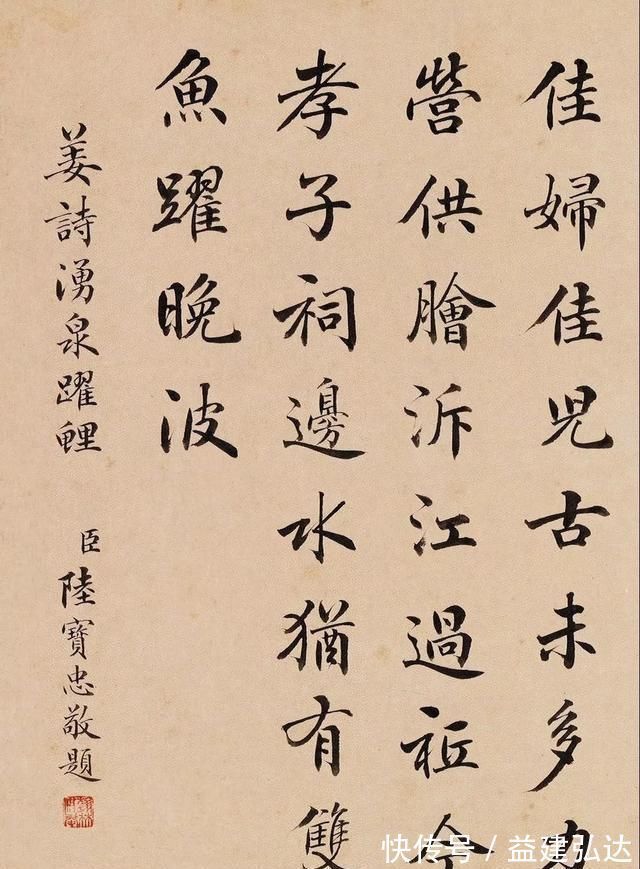 佳婦佳兒古未多力
營供膾泝江過祗今
孝子祠邊水猶有雙
魚躍晚波
姜詩湧泉躍鯉
臣陸寶忠敬題
快传号／益建弘达